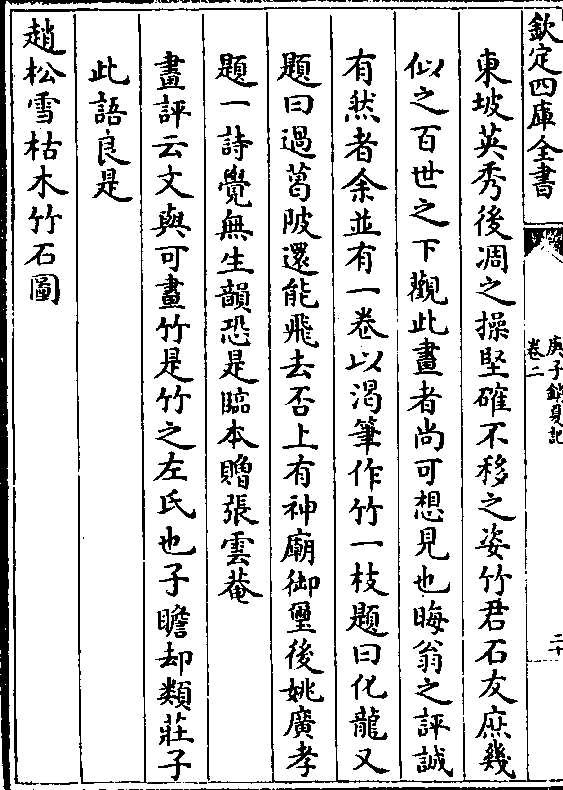 欽定四庫全書
庚子銷夏記
卷二
二十
東坡英秀後凋之操堅確不移之姿竹君石友庶幾
似之百世之下觀此畫者尚可想見也晦翁之評誠
有然者余並有一卷以渴筆作竹一枝題曰化龍又
題曰過葛陂還能飛去否上有神廟御璽後姚廣孝
題一詩覺無生韻恐是臨本贈張雲菴
畫評云文與可畫竹是竹之左氏也子瞻却類莊子
此語良是
趙松雪枯木竹石圖